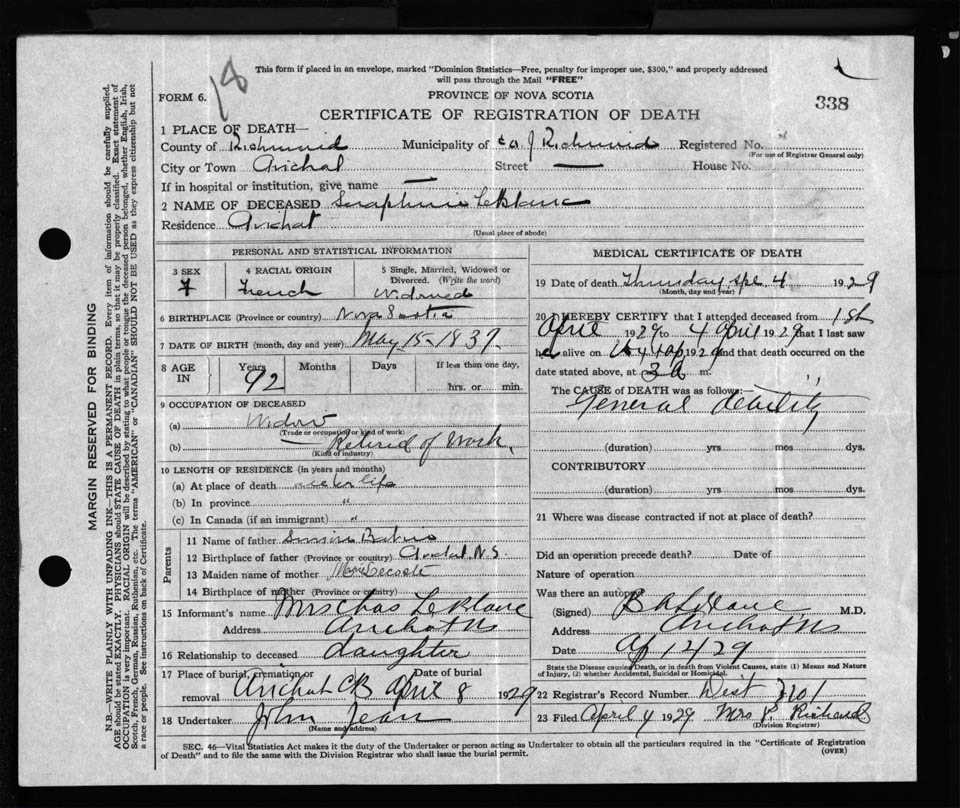 18
This form if placed in an envelope, marked "Dominion Statistics—Free, penalty for improper use, $300," and properly addressed
will pass through the Mail "FREE"
FORM 6. PROVINCE OF NOVA SCOTIA 338
CERTIFICATE OF REGISTRATION OF DEATH
1 PLACE OF DEATH—
County of Richmond Municipality of Co of Richmond Registered No.
(For use of Registrar General only)
City or Town Arichat Street — House No.
If in hospital or institution, give name —
2 NAME OF DECEASED Seraphine LeBlanc
Residence Arichat
(Usual place of abode)
PERSONAL AND STATISTICAL INFORMATION
3 SEX 4 RACIAL ORIGIN 5 Single, Married, Widowed or
Divorced. (Write the word)
F French Widowed
6 BIRTHPLACE (Province or country) Nova Scotia
7 DATE OF BIRTH (month, day and year) May 15-1837
8 AGE IN Years Months Days If less than one day,
92 hrs. or min.
9 OCCUPATION OF DECEASED
(a) Widow
(Trade or occupation or kind of work)
(b) Retired of Work.
(Kind of industry)
10 LENGTH OF RESIDENCE (in years and months)
(a) At place of death all her life
(b) In province "
(c) In Canada (if an immigrant) "
Parents
11 Name of father
12 Birthplace of father (Province or country) Arichat N.S.
13 Maiden name of mother Marie
14 Birthplace of mother (Province or country)
15 Informant's name Mrs Chas LeBlanc
Address Arichat NS
16 Relationship to deceased daughter
17 Place of burial, cremation or Date of burial
removal Arichat CB April 8 1929
18 Undertaker John Jean
(Name and address)
MEDICAL CERTIFICATE OF DEATH
19 Date of death Thursday 4 1929
(Month, day and year)
20 I HEREBY CERTIFY that I attended deceased from 1st
April 1929 to 4 April 1929 that I last saw
h alive on 4 ap 1929 and that death occurred on
date stated above, at 3 a m.
The CAUSE of DEATH was as follows:
General debility
(duration) yrs mos dys.
CONTRIBUTORY
(duration) yrs mos dys.
21 Where was disease contracted if not at place of death?
Did an operation precede death? Date of
Nature of operation
Was there an autopsy
(Signed) M.D.
Address Arichat NS
Date
State the Disease causing Death, or in death from Violent Causes, state (1) Means and Nature
of Injury, (2) whether Accidental, Suicidal or Homicidal.
22 Registrar's Record Number Dist
23 Filed April 4 1929 Mrs P. Richard
(Division Registrar)
SEC. 46—Vital Statistics Act makes it the duty of the Undertaker or person acting as Undertaker to obtain all the particulars required in the "Certificate of Registration
of Death" and to file the same with the Division Registrar who shall issue the burial permit. (OVER)
MARGIN RESERVED FOR BINDING
N.B.—WRITE PLAINLY WITH UNFADING INK—THIS IS A PERMANENT RECORD. Every item of information should be carefully supplied.
AGE should be stated EXACTLY. PHYSICIANS should STATE CAUSE OF DEATH in plain terms, so that it may be properly classified. Exact statement of
OCCUPATION is very important. RACIAL ORIGIN will be described by stating to what people or tongue the deceased person belonged, whether English, Irish,
Scotch, French, German, Russian, Ruthenian, etc. The terms "AMERICAN" or "CANADIAN" SHOULD NOT BE USED as they express citizenship but not
a race or people. See instructions on back of Certificate.